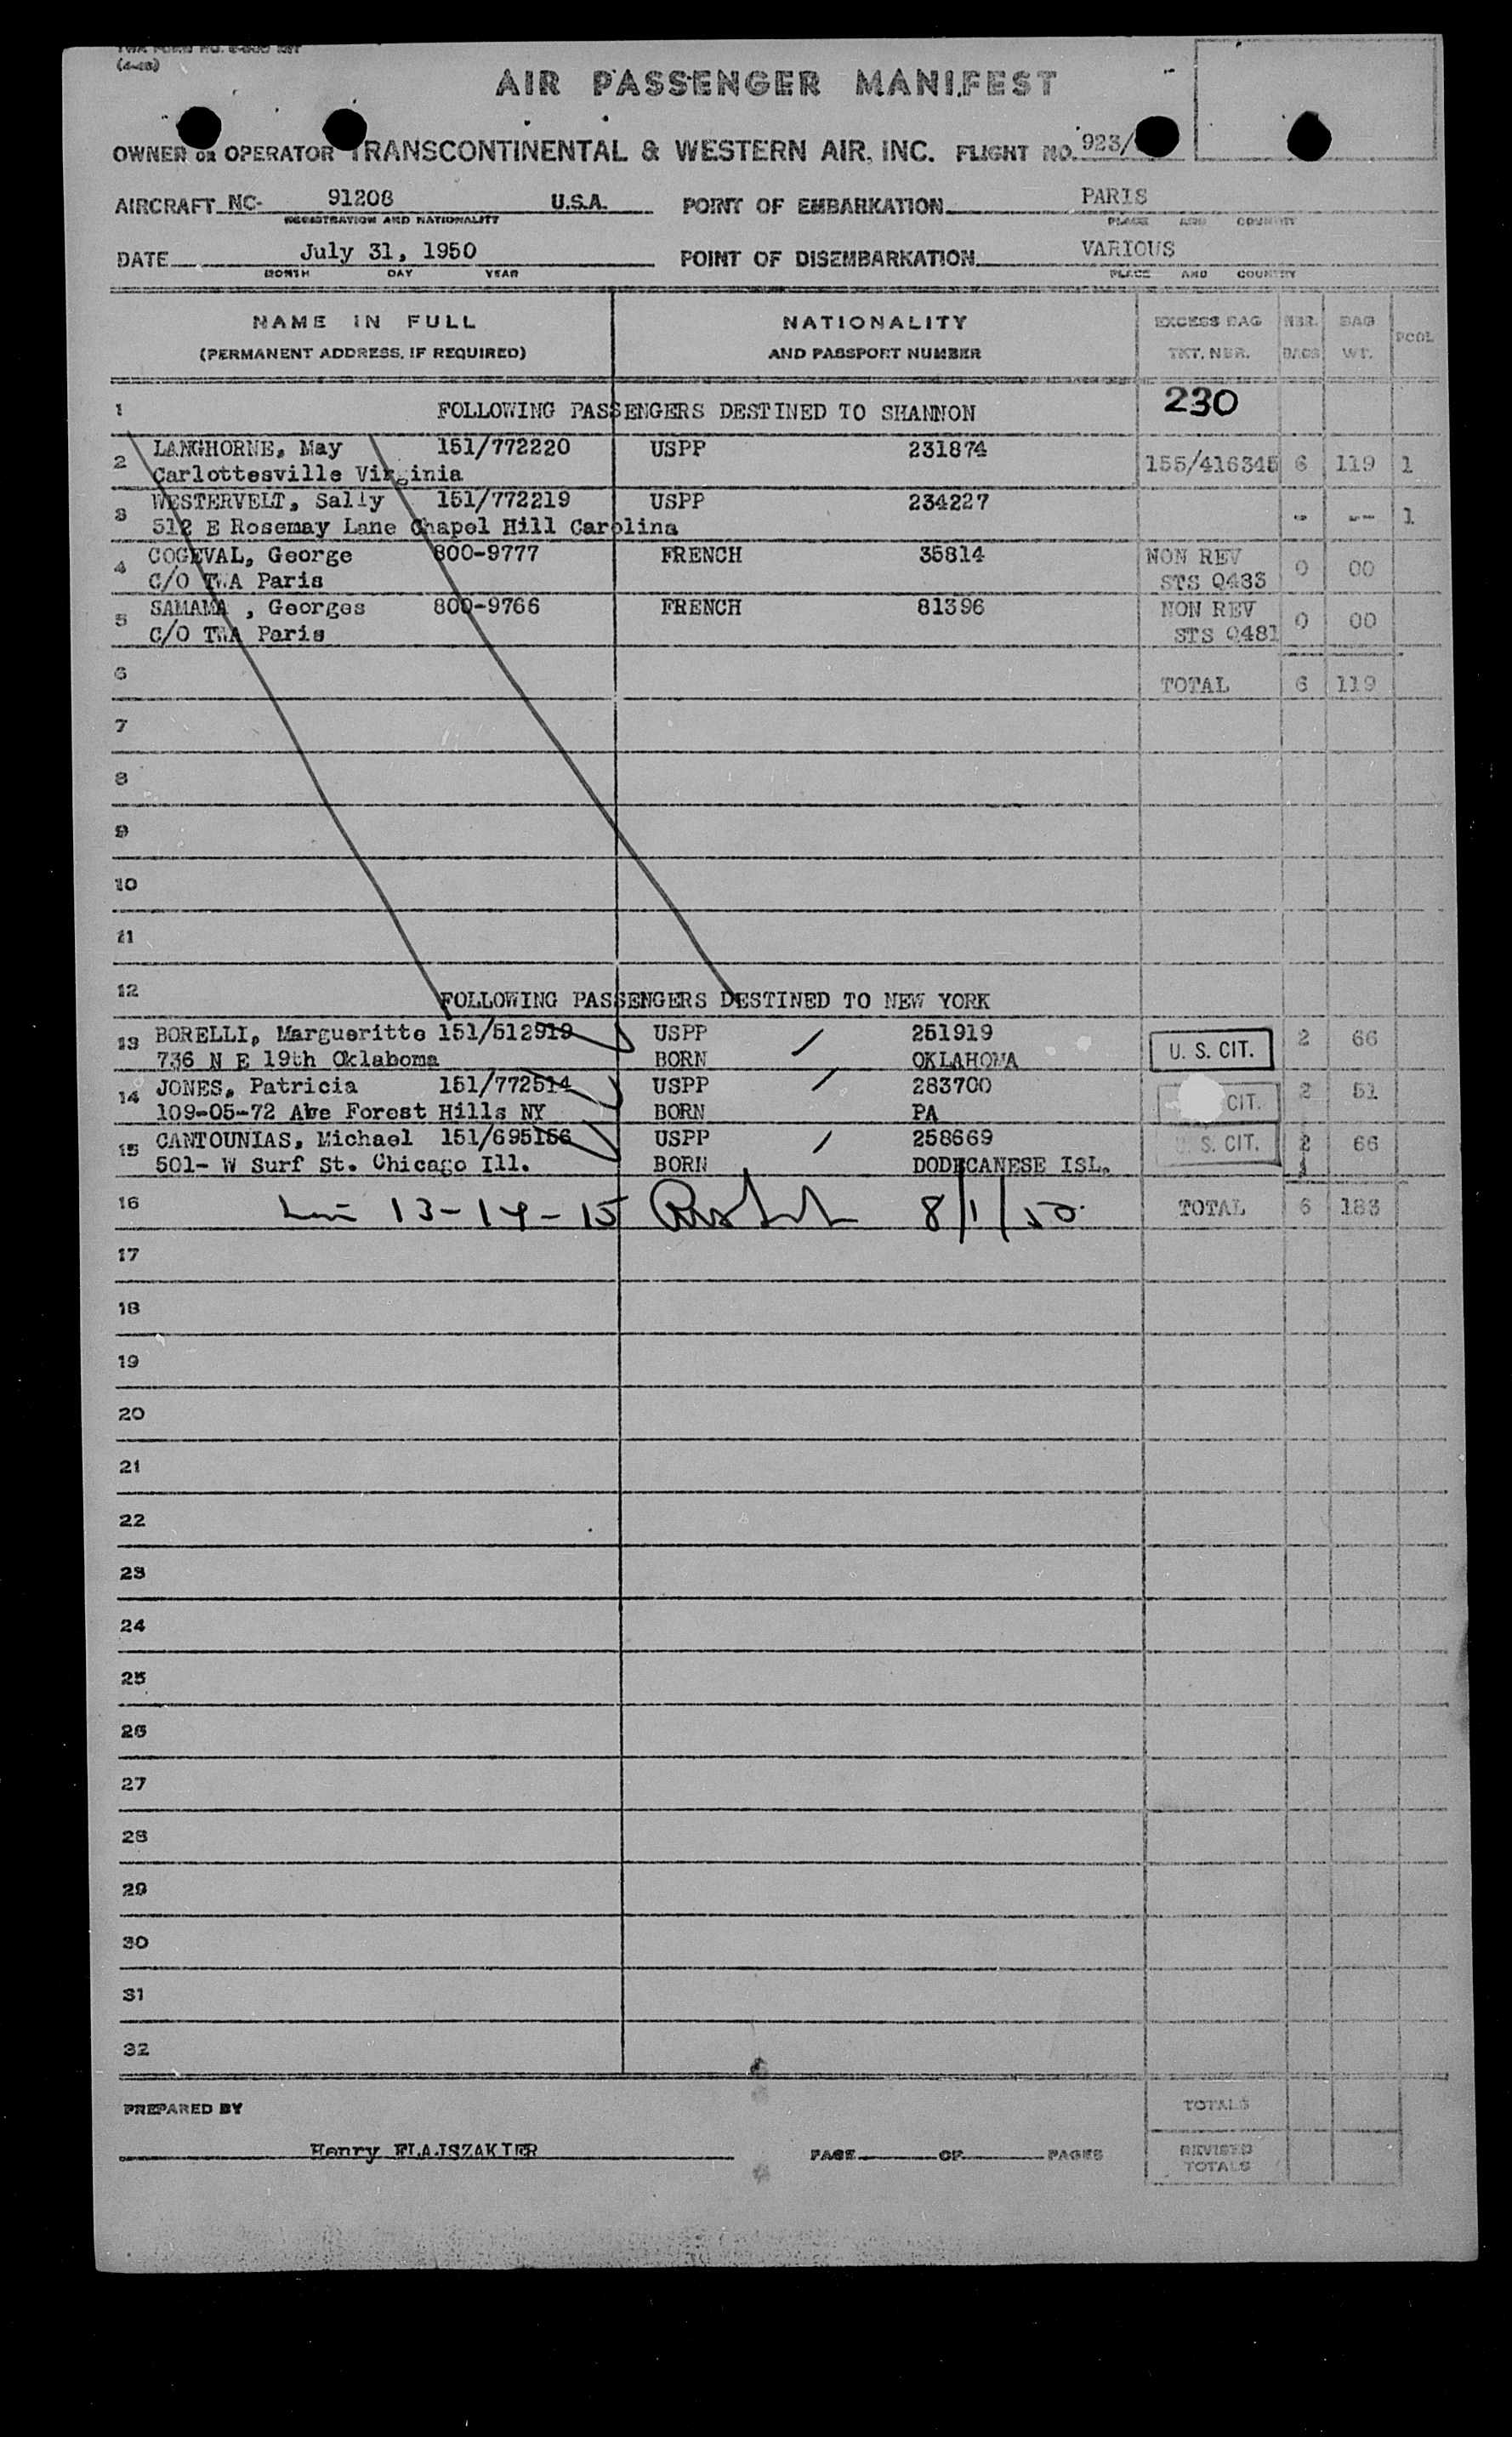 (4-48)
AIR PASSENGER MANIFEST
OWNER OR OPERATOR TRANSCONTINENTAL & WESTERN AIR, INC. FLIGHT NO. 923/
AIRCRAFT NC- 91208 U.S.A. POINT OF EMBARKATION PARIS
REGISTRATION AND NATIONALITY PLACE AND COUNTRY
DATE July 31, 1950 POINT OF DISEMBARKATION VARIOUS
MONTH DAY YEAR PLACE AND COUNTRY
NAME IN FULL NATIONALITY EXCESS BAG NBR. BAG PCOL
(PERMANENT ADDRESS, IF REQUIRED) AND PASSPORT NUMBER TKT. NBR. BAGS WT.
1 FOLLOWING PASSENGERS DESTINED TO SHANNON 230
2 LANGHORNE, May 151/772220 USPP 231874 155/416345 6 119 1
Carlottesville Virginia
3 WESTERVELT, Sally 151/772219 USPP 234227 - -- 1
512 E Rosemay Lane Chapel Hill Carolina
4 COGEVAL, George 800-9777 FRENCH 35814 NON REV 0 00
C/O TWA Paris STS Q433
5 SAMAMA , Georges 800-9766 FRENCH 81396 NON REV 0 00
C/O TWA Paris STS Q481
6 TOTAL 6 119
7
8
9
10
11
12 FOLLOWING PASSENGERS DESTINED TO NEW YORK
13 BORELLI, Margueritte 151/512919 USPP 251919 U. S. CIT. 2 66
736 N E 19th Oklahoma BORN OKLAHOMA
14 JONES, Patricia 151/772514 USPP 283700 CIT. 2 51
109-05-72 Ave Forest Hills NY BORN PA
15 CANTOUNIAS, Michael 151/695156 USPP 258669 U. S. CIT. 2 66
501- W Surf St. Chicago Ill. BORN DODECANESE ISL.
16 13-14-15 8/1/50 TOTAL 6 183
17
18
19
20
21
22
23
24
25
26
27
28
29
30
31
32
PREPARED BY TOTALS
Henry FLAJSZAKIER PAGE OF PAGES REVISED
TOTALS